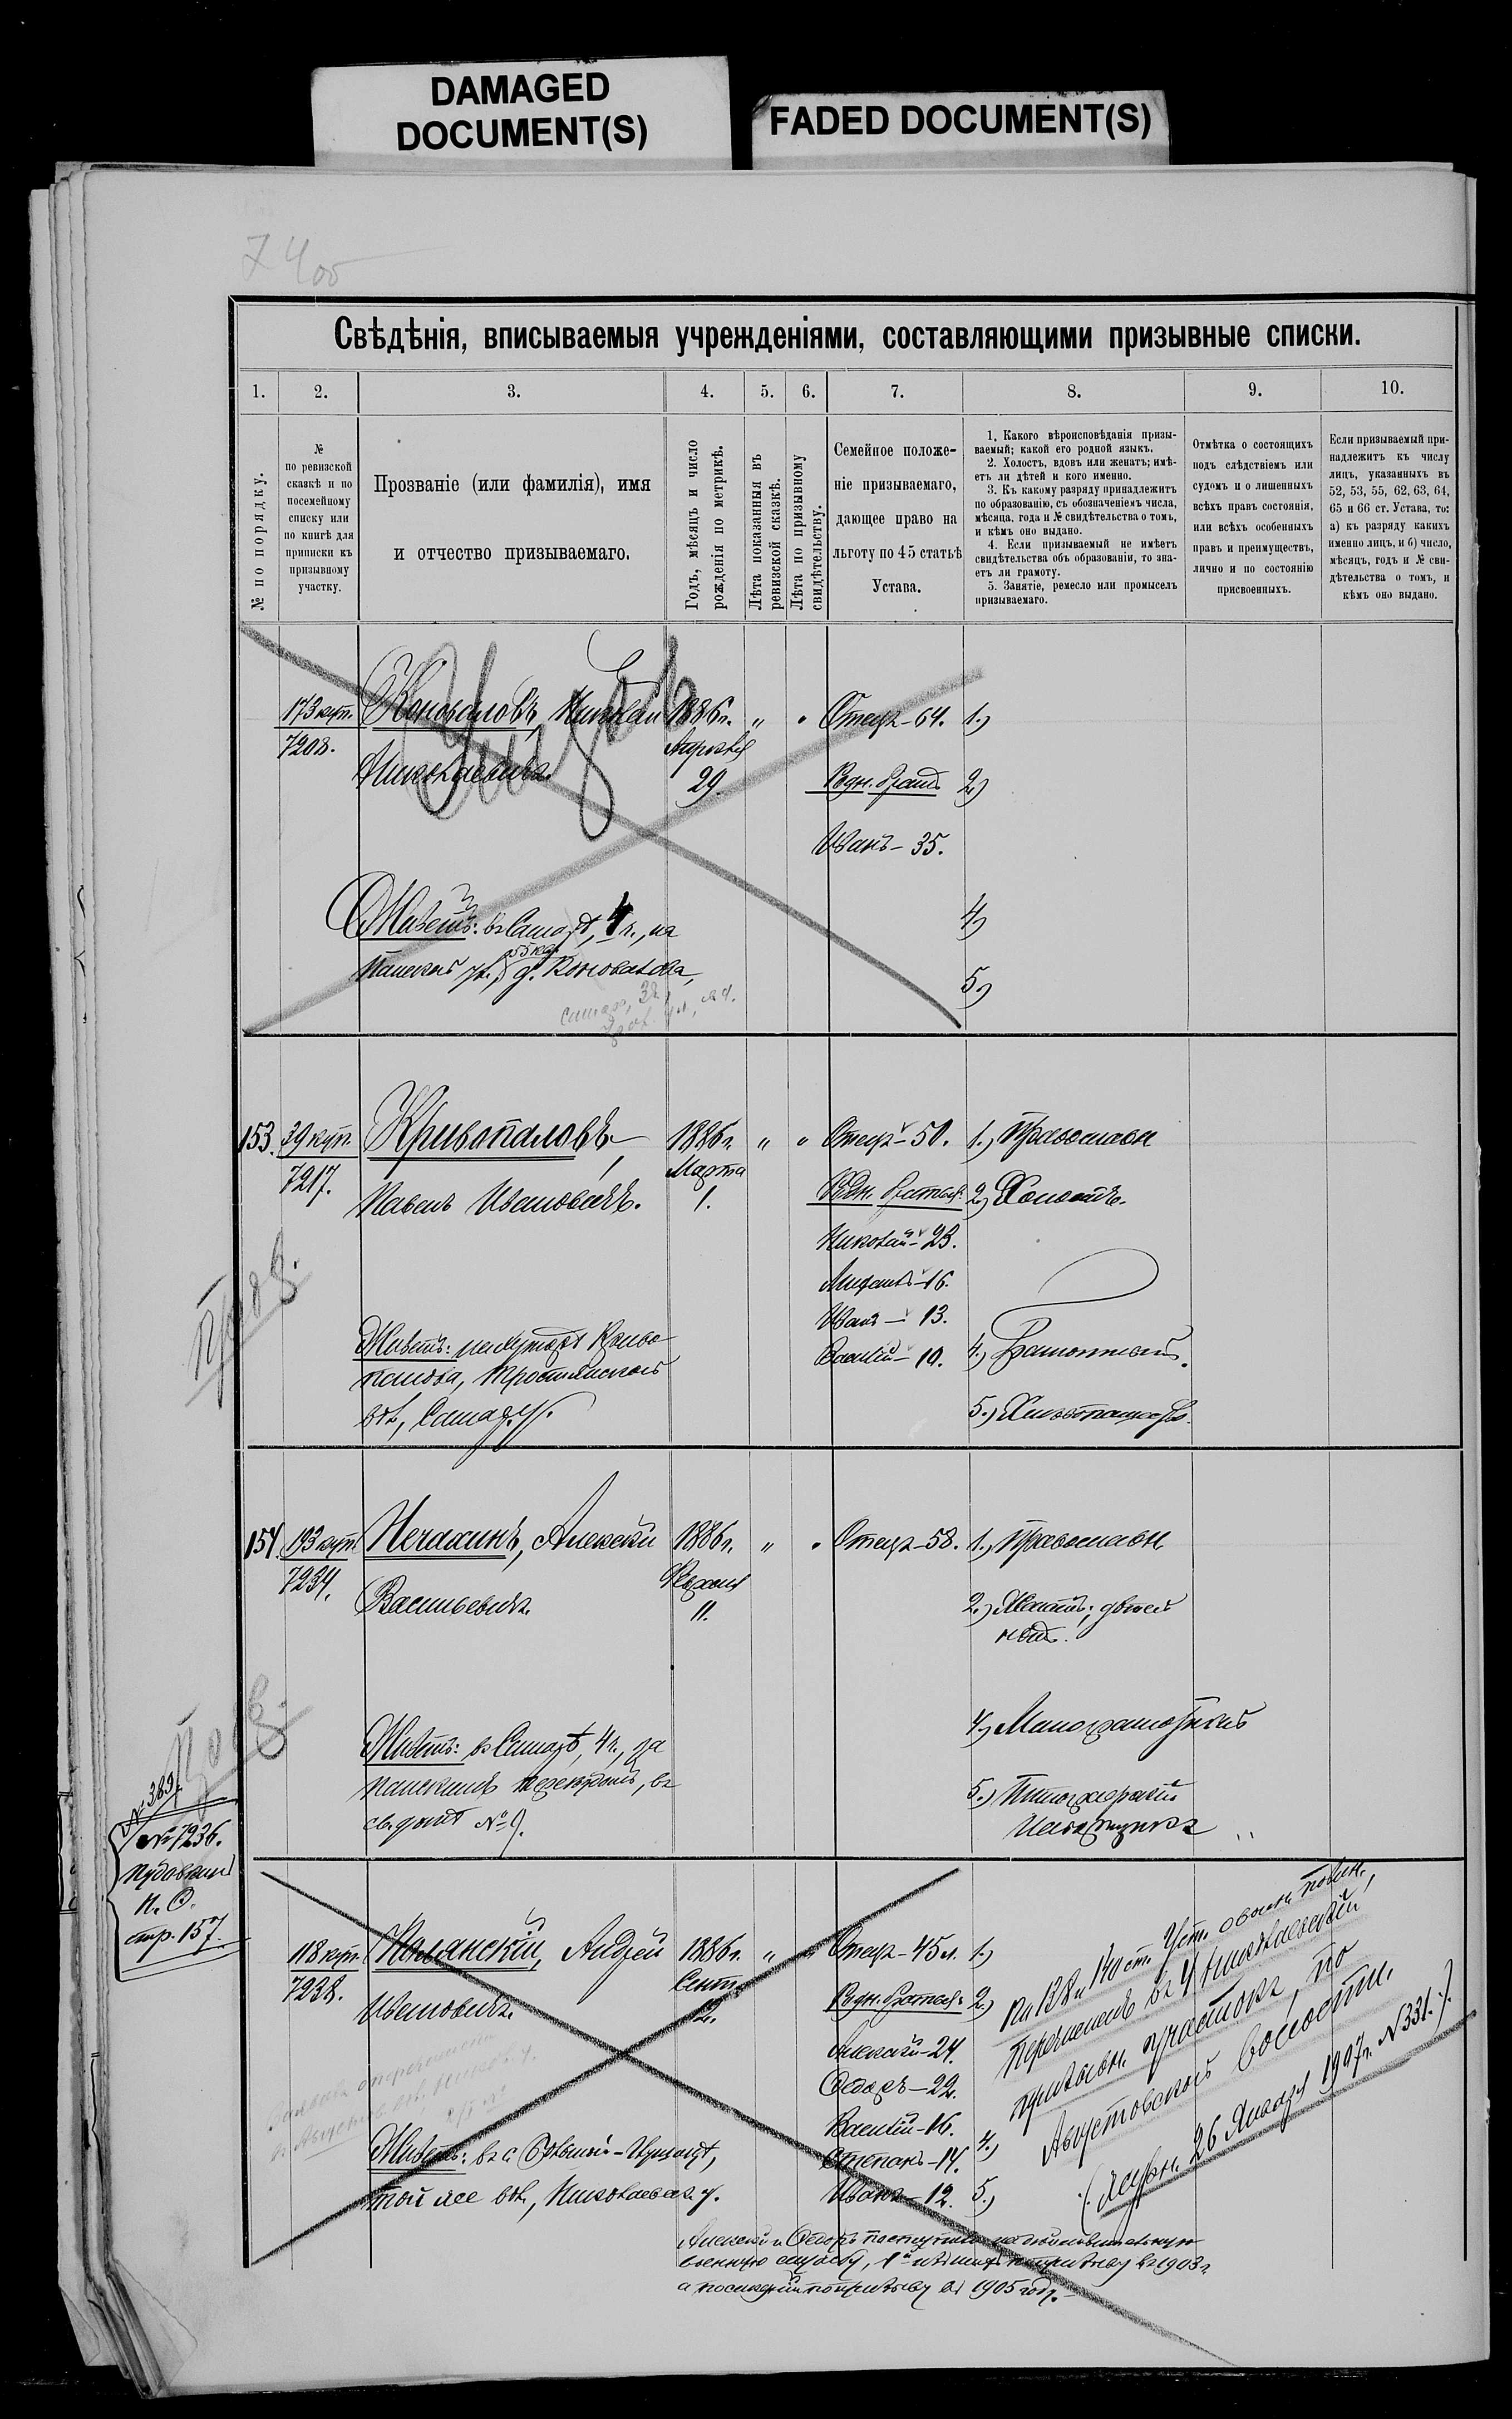 DAMAGED
DOCUMENT(S)
FADED DOCUMENT(S)
Свѣдѣнія, вписываемыя учрежденіями, составляющими призывные списки.
1.
2.
3.
4.
5.
6.
7.
8.
9.
10.
№ по порядку.
№
по ревизской
сказкѣ и по
посемейному
списку или
по книгѣ для
приписки къ
призывному
участку.
Прозваніе (или фамилія), имя
и отчество призываемаго.
Годъ, мѣсяцъ и число
рожденія по метрикѣ.
Лѣта показанныя въ
ревизской сказкѣ.
Лѣта по призывному
свидѣтельству.
Семейное положе-
ніе призываемаго,
дающее право на
льготу по 45 статьѣ
Устава.
1. Какого вѣроисповѣданія призы-
ваемый; какой его родной языкъ.
2. Холостъ, вдовъ или женатъ; имѣ-
етъ ли дѣтей и кого именно.
3. Къ какому разряду принадлежитъ
по образованію, съ обозначеніемъ числа,
мѣсяца, года и № свидѣтельства о томъ,
и кѣмъ оно выдано.
4. Если призываемый не имѣетъ
свидѣтельства объ образованіи, то зна-
етъ ли грамоту.
5. Занятіе, ремесло или промыселъ
призываемаго.
Отмѣтка о состоящихъ
подъ слѣдствіемъ или
судомъ и о лишенныхъ
всѣхъ правъ состоянія,
или всѣхъ особенныхъ
правъ и преимуществъ,
лично и по состоянію
присвоенныхъ.
Если призываемый при-
надлежитъ къ числу
лицъ, указанныхъ въ
52, 53, 55, 62, 63, 64,
65 и 66 ст. Устава, то:
а) къ разряду какихъ
именно лицъ, и б) число,
мѣсяцъ, годъ и № сви-
дѣтельства о томъ, и
кѣмъ оно выдано.
173 куп.
7208.
Коноваловъ, Николай
Николаевичъ.
1886 г.
Апрѣля
29.
" "
Отецъ - 64.
Родн. братъ
Иванъ - 35.
1.)
2)
4)
5)
Живетъ: въ Самарѣ, 4 ч., на
д. Коновалова,
153.
39 куп.
7217.
Кривопаловъ,
Павелъ Ивановичъ.
1886 г.
Марта
1.
" "
Отецъ - 50.
Родн. братья:
Николай - 23.
16.
Иванъ - 13.
Василій - 10.
1.) Православн.
2.) Холостъ.
4.) Грамотный.
5.) Хлѣбопашество.
Живетъ: на хуторѣ Криво-
палова,
вол., Самар. у.
154.
193 куп.
7234.
Нечахинъ, Алексѣй
Васильевичъ.
1886 г.
Февраля
11.
" "
Отецъ - 58.
1.) Православн.
2.) Женатъ; дѣтей
нѣтъ.
4.) Малограмотный
5.)
Живетъ: въ Самарѣ, 4 ч., за
въ
св. домѣ № 9.
№ 389.
№ 7236.
Н. О.
стр. 157.
118 куп.
7238.
Полянскій, Андрей
Ивановичъ.
1886 г.
Сент.
12.
"
Отецъ - 45 л.
Родн. братья:
Алексѣй - 24.
Ѳедоръ - 22.
Василій - 16.
Степанъ - 14.
Иванъ - 12.
1.)
2.)
4.)
5.)
По 138 и 140 ст. Уст. о воинск. повин.,
перечисленъ въ 4 Николаевскій
призывн. участокъ, по
Августовской волости.
(Журн. 26 Января 1907 г. N 331.)
Живетъ: въ с. Большой-
той же вол., Николаевск. у.
Алексѣй и Ѳедоръ поступили на дѣйствительную
военную службу, 1й по призыву въ 1903 г.
а послѣдній по призыву въ 1905 году.